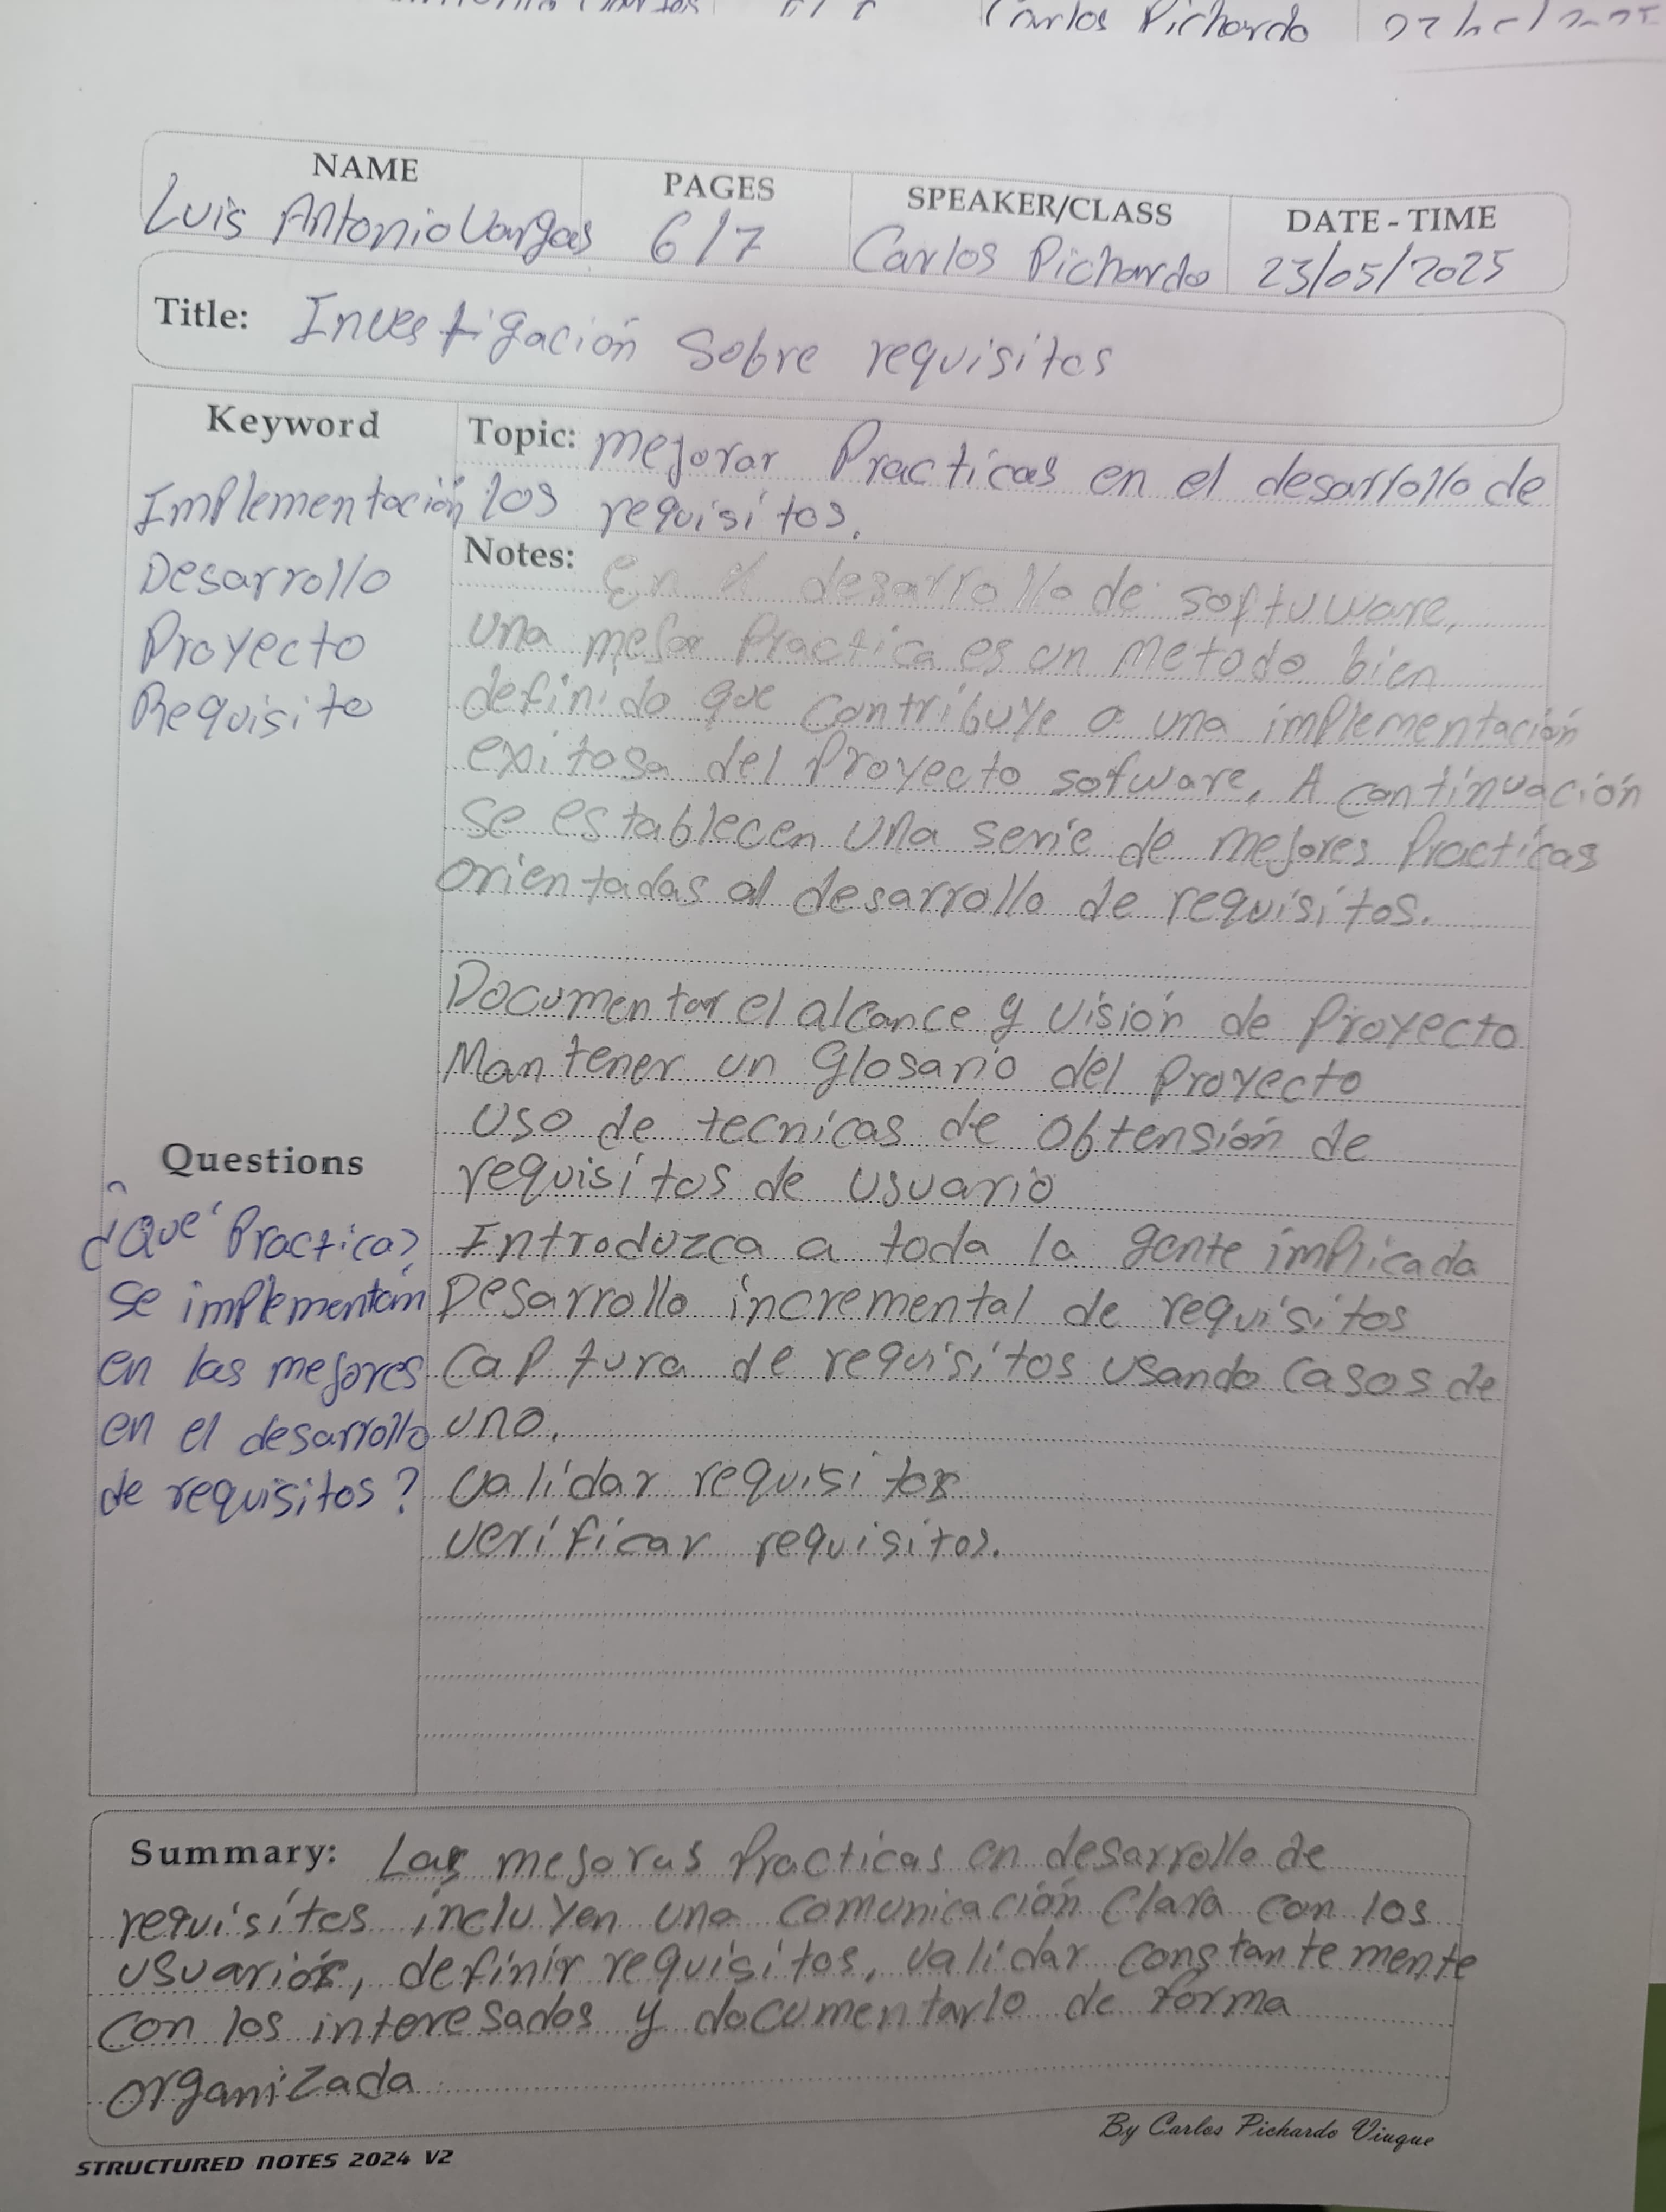 Carlos Pichardo
NAME PAGES SPEAKER/CLASS DATE - TIME
Luis Antonio Vargas 6/7 Carlos Pichardo 23/05/2025
Title: Investigación Sobre requisitos
Keyword
Implementación
Desarrollo
Proyecto
Requisito
Topic: mejorar Practicas en el desarrollo de
los requisitos.
Notes: En el desarrollo de softuware,
una mejor Practica es un metodo bien
definido que contribuye a una implementación
exitosa del Proyecto sofware, A continuación
se establecen una serie de mejores Practicas
orientadas al desarrollo de requisitos.
Documentar el alcance y visión de Proyecto
Mantener un Glosario del Proyecto
Uso de tecnicas de obtensión de
requisitos de usuario
Introduzca a toda la gente implicada
Desarrollo incremental de requisitos
Captura de requisitos usando Casos de
uno.
validar requisitos
verificar requisitos.
Questions
¿Qué Practica?
se implementan
en las mejores
en el desarrollo
de requisitos?
Summary: Las mejoras Practicas en desarrollo de
requisitos incluyen una comunicación Clara con los
usuarios, definir requisitos, validar constantemente
con los interesados y documentarlo de forma
organizada
By Carlos Pichardo Viuque
STRUCTURED NOTES 2024 V2